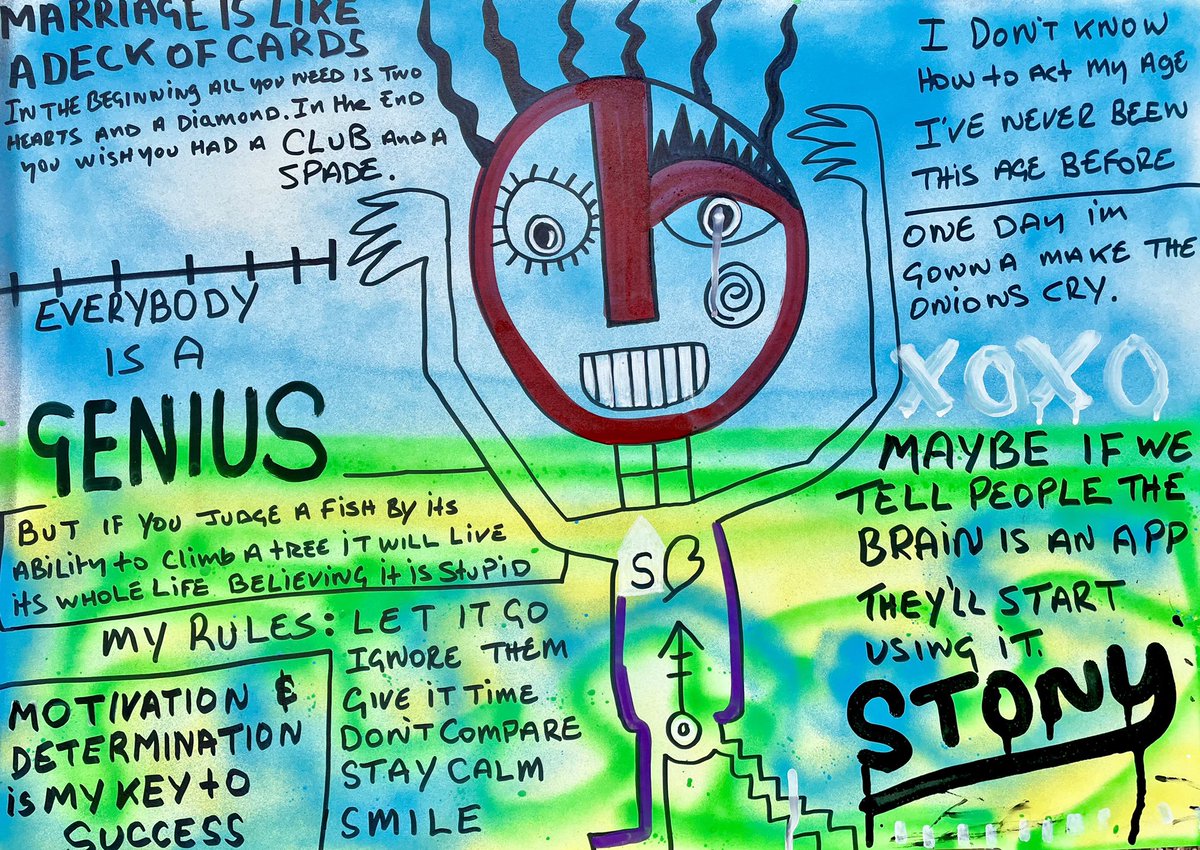 MARRIAGE IS LIKE
A DECK OF CARDS
IN THE BEGINNING ALL YOU NEED IS TWO
HEARTS AND A DIAMOND. IN the END
YOU WISH YOU HAD A CLUB AND A
SPADE.
EVERYBODY
IS A
GENIUS
BUT IF YOU JUDGE A FISH BY its
ABILITY to CLIMB A tREE IT WILL LIVE
its WHOLE LIFE BELIEVING it IS StUPID
MY RULES: LET IT GO
IGNORE THEM
GIVE IT TIME
DON'T COMPARE
STAY CALM
SMILE
MOTIVATION &
DETERMINATION
is MY KEY to
SUCCESS
SB
I DON'T KNOW
HOW to ACT MY AGE
I'VE NEVER BEEN
THIS AGE BEFORE
ONE DAY im
GONNA MAKE THE
ONIONS CRY.
XOXO
MAYBE IF WE
TELL PEOPLE THE
BRAIN IS AN APP
THEY'LL START
USING IT.
STONY